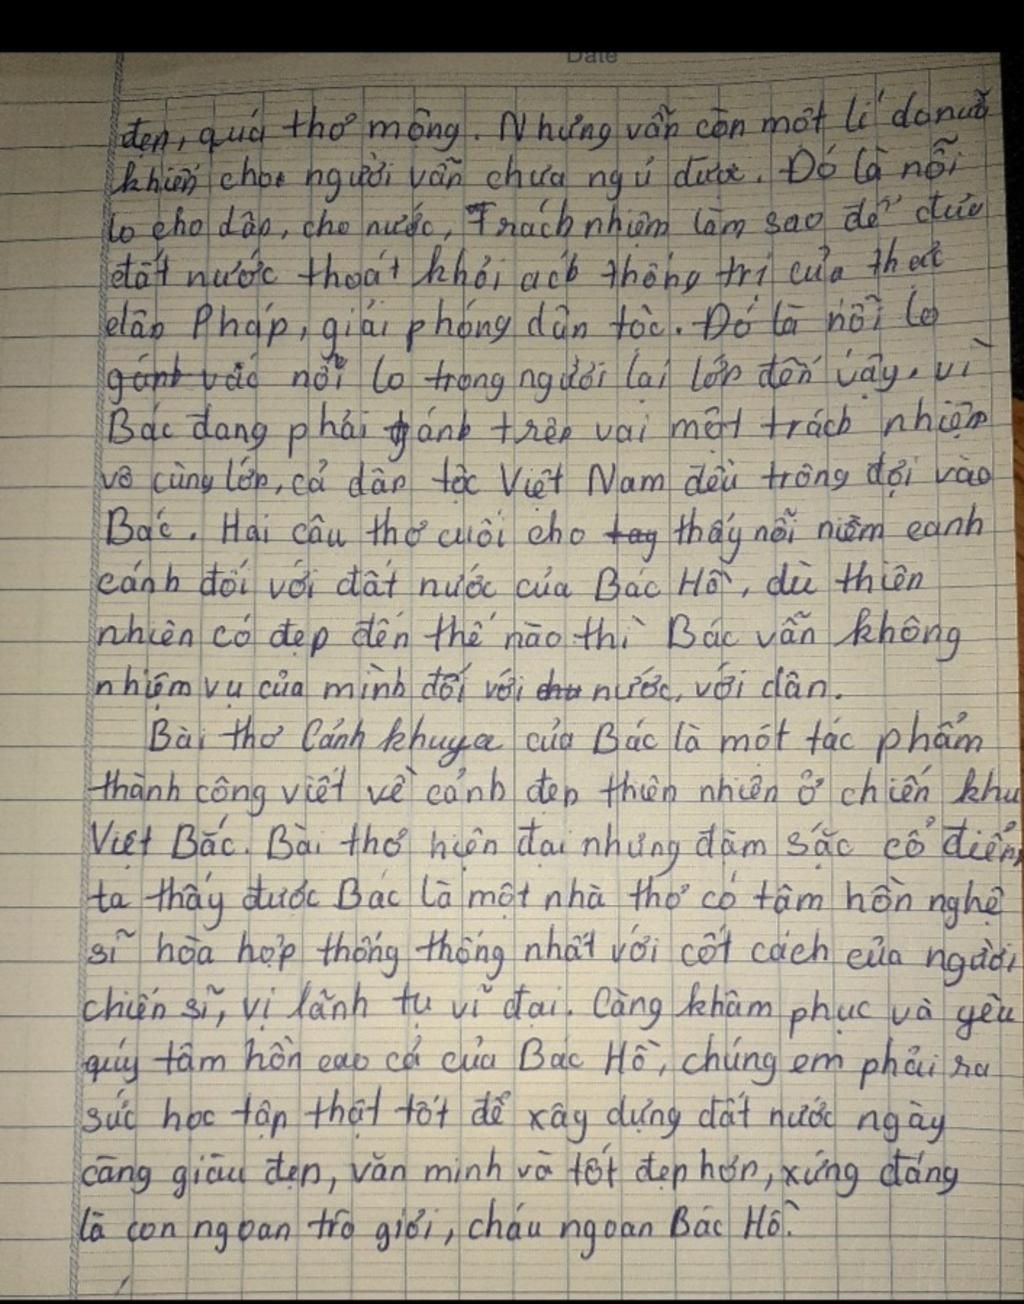 Date
đẹp, quá thơ mộng. Nhưng vẫn còn một lí do nữa
khiến cho người vẫn chưa ngủ được. Đó là nỗi
lo cho dân, cho nước, Trách nhiệm làm sao để đưa
đất nước thoát khỏi ách thống trị của thực
dân Pháp, giải phóng dân tộc. Đó là nỗi lo
gánh vác nỗi lo trong người lại lớn đến vậy, vì
Bác đang phải gánh trên vai một trách nhiệm
vô cùng lớn, cả dân tộc Việt Nam đều trông đợi vào
Bác. Hai câu thơ cuối cho tay thấy nỗi niềm canh
cánh đối với đất nước của Bác Hồ, dù thiên
nhiên có đẹp đến thế nào thì Bác vẫn không
nhiệm vụ của mình đối với nước, với dân.
Bài thơ Cảnh khuya của Bác là một tác phẩm
thành công viết về cảnh đẹp thiên nhiên ở chiến khu
Việt Bắc. Bài thơ hiện đại nhưng đậm sắc cổ điển,
ta thấy được Bác là một nhà thơ có tâm hồn nghệ
sĩ hòa hợp thống thống nhất với cốt cách của người
chiến sĩ, vị lãnh tụ vĩ đại. Càng khâm phục và yêu
quý tâm hồn cao cả của Bác Hồ, chúng em phải ra
sức học tập thật tốt để xây dựng đất nước ngày
càng giàu đẹp, văn minh và tốt đẹp hơn, xứng đáng
là con ngoan trò giỏi, cháu ngoan Bác Hồ.